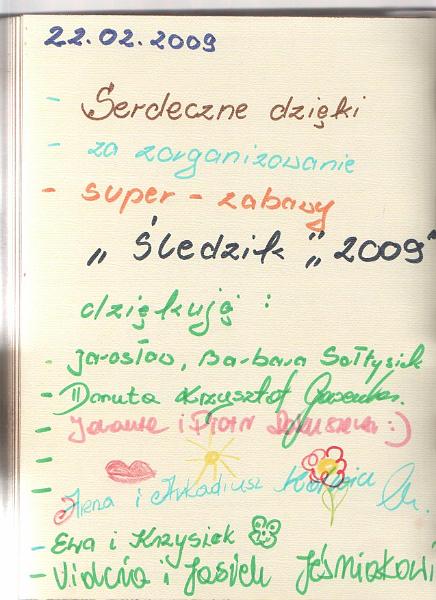 22.02.2009
- Serdeczne dzięki
- za zorganizowanie
- super - zabawy
„ Śledzik „ 2009"
dziękuję :
- Jarosław, Barbara Sołtysik
- Danuta Krzysztof
- i Piotr :)
- Anna i Arkadiusz
- Ewa i Krzysiek
- i Jasiek Jeśmiakowi